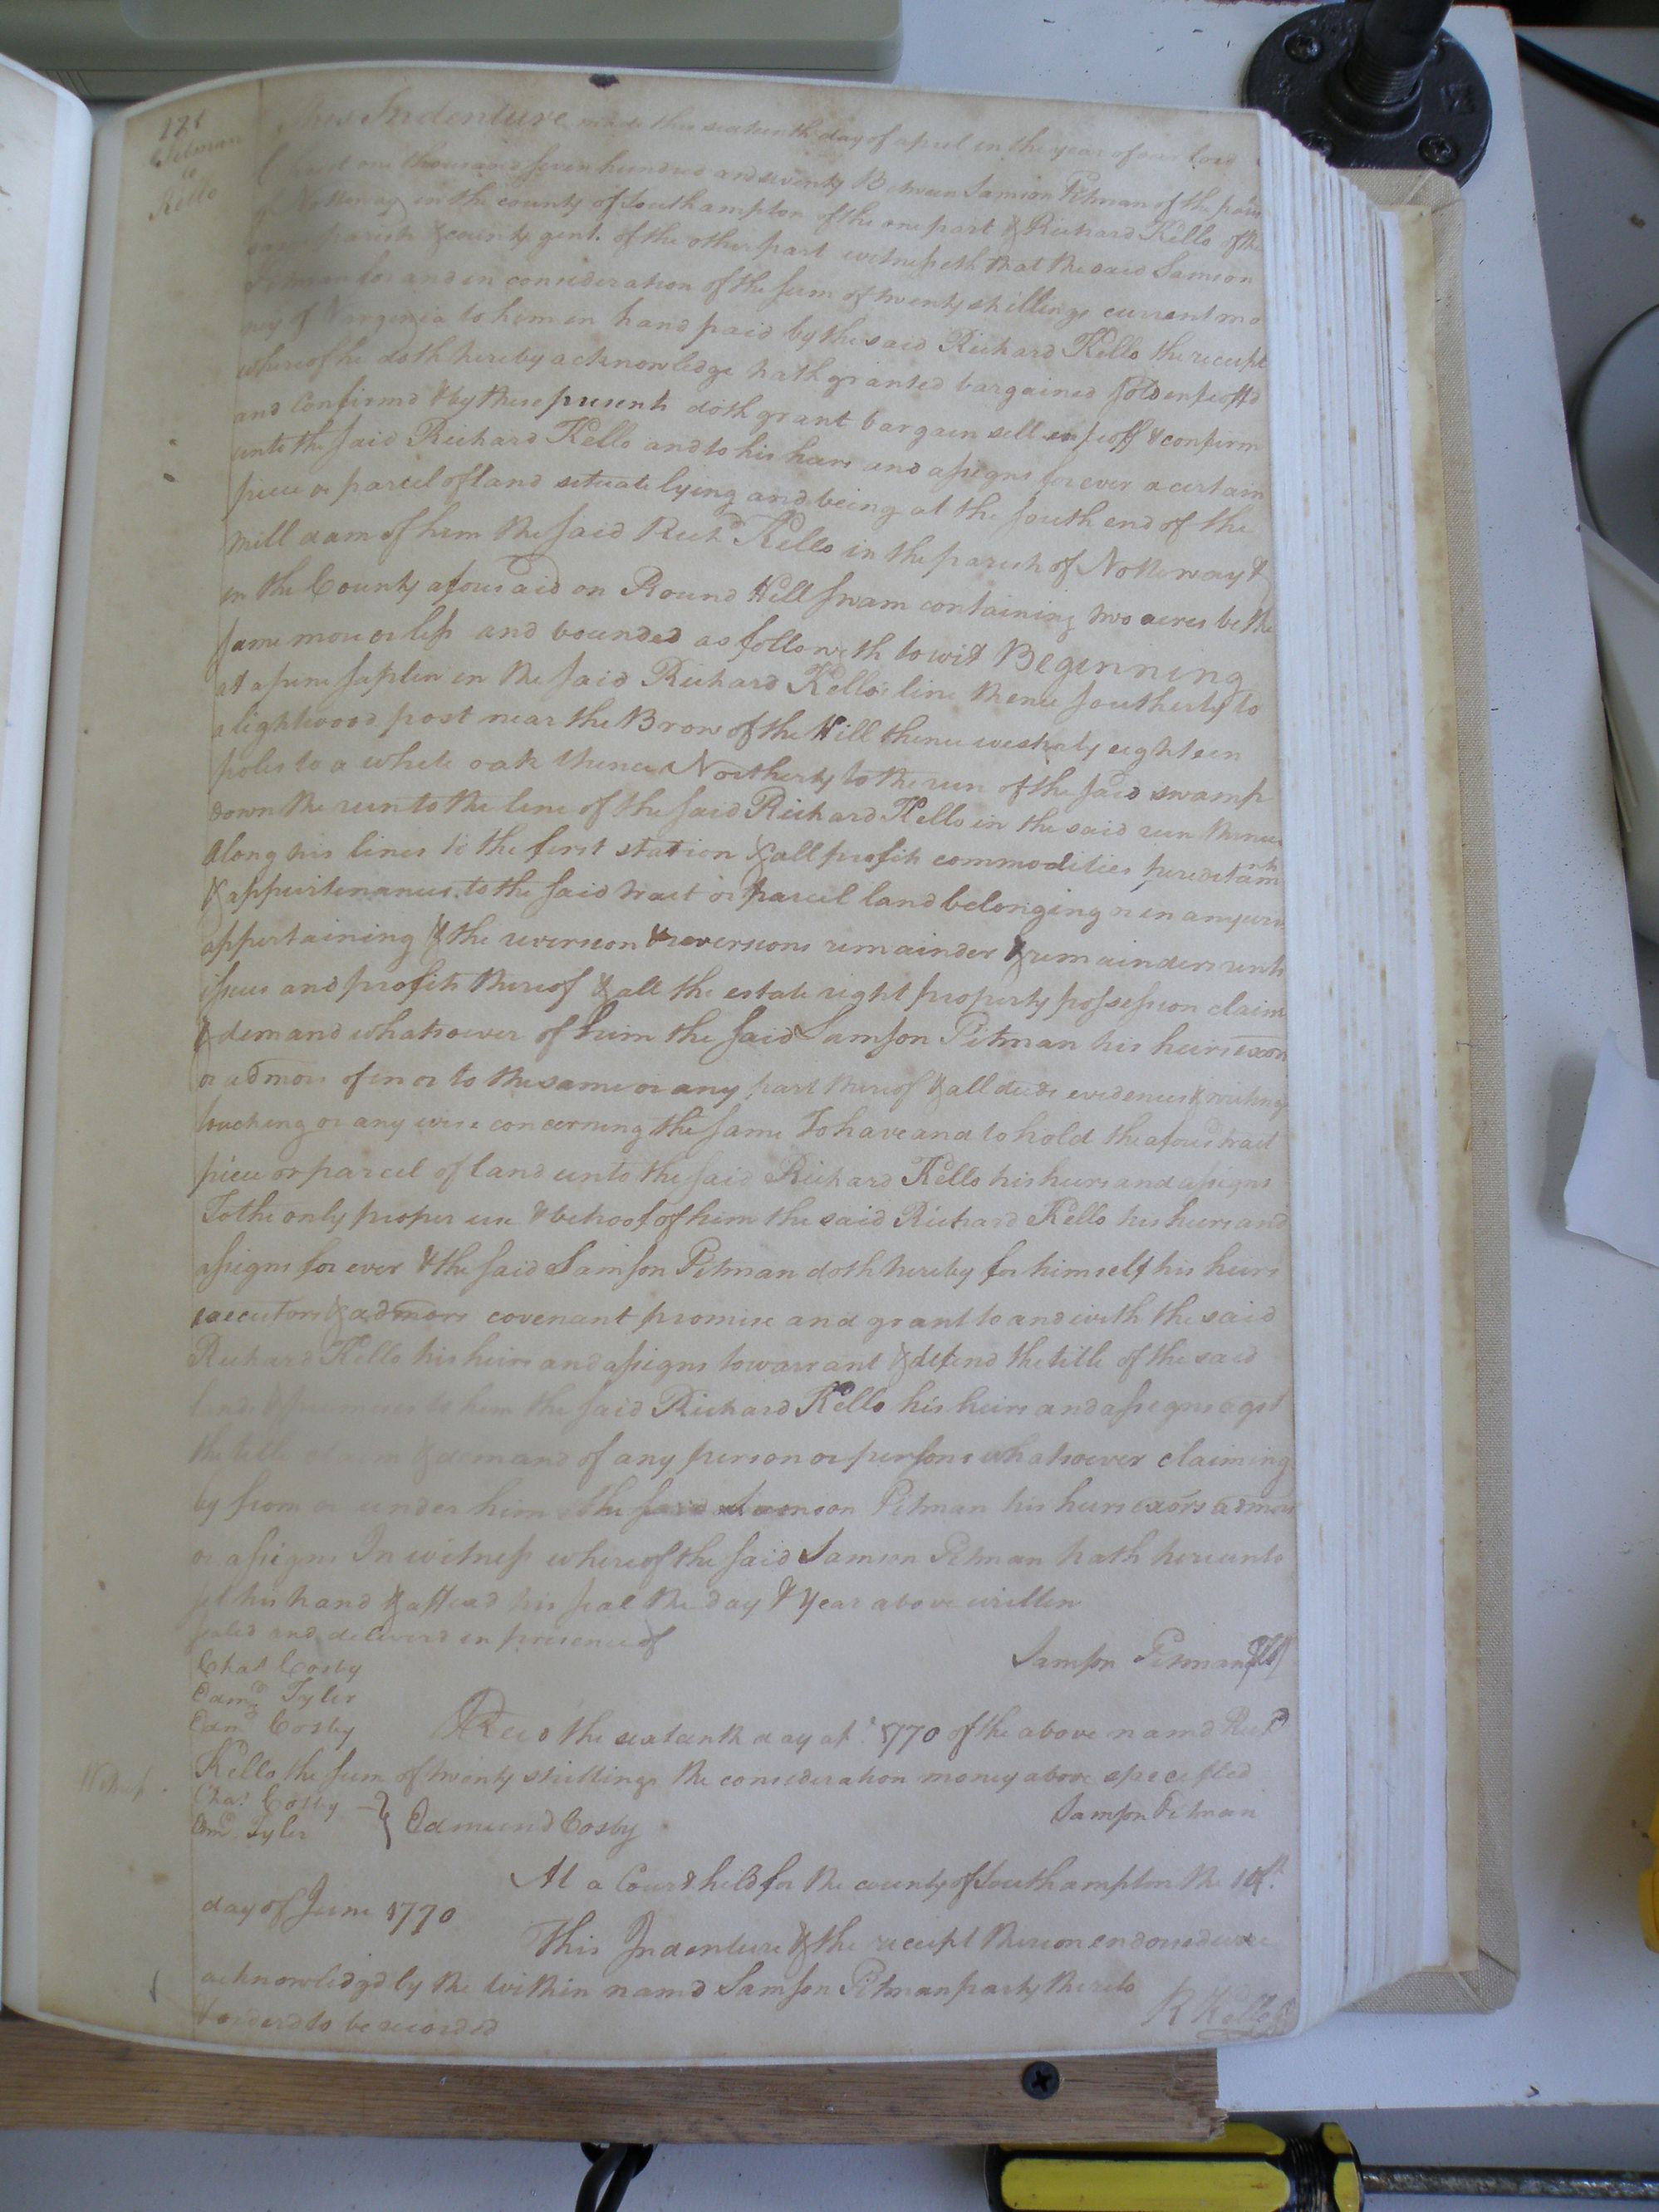 Pitman
to
Kello
This Indenture made this sixteenth day of april in the year of our lord
Christ one thousand seven hundred and seventy Between Samson Pitman of the paris
of Nottoway in the county of Southampton of the one part & Richard Kello of the
same parish & county gent. of the other part witnesseth that the said Samson
Pitman for and in consideration of the sum of twenty shillings current mo
ney of Virginia to him in hand paid by the said Richard Kello the receipt
whereof he doth hereby acknowledge hath granted bargained sold enfeoffd
and Confirmd & by these presents doth grant bargain sell enfeoff & confirm
unto the said Richard Kello and to his heirs and assigns for ever a certain
piece or parcel of land situate lying and being at the south end of the
mill dam of him the said Richd Kello in the parish of Nottoway &
in the County aforesaid on Round Hill swam containing two acres be the
same more or less and bounded as followeth to wit Beginning
at a pine saplin in the said Richard Kello's line thence southerly to
a lightwood post near the Brow of the Hill thence westerly eighteen
poles to a white oak thence Northerly to the run of the said swamp
down the run to the line of the said Richard Kello in the said run thence
along his lines to the first station & all profits commodities hereditamts
& appurtenances to the said tract or parcel land belonging or in any wise
appertaining & the reversion & reversions remainder & remainders rents
issues and profits thereof & all the estate right property possession claim
& demand whatsoever of him the said Samson Pitman his heirs exors
or admors of in or to the same or any part thereof & all deeds evidences & writings
touching or any wise concerning the same To have and to hold the aforesd tract
piece or parcel of land unto the said Richard Kello his heirs and assigns
To the only proper use & behoof of him the said Richard Kello his heirs and
assigns for ever & the said Samson Pitman doth hereby for himself his heirs
executors & admors covenant promise and grant to and with the said
Richard Kello his heirs and assigns to warrant & defend the title of the said
land & premises to him the said Richard Kello his heirs and assigns agst
the title claim & demand of any person or persons whatsoever claiming
by from or under him the said Samson Pitman his heirs exors admors
or assigns In witness whereof the said Samson Pitman hath hereunto
set his hand & affixd his seal the day & year above written
sealed and deliverd in presence of
Samson Pitman (LS)
Chas Cosby
Edmd. Tyler
Edmd Cosby
Recd the sixteenth day of 1770 of the above namd Richd
Kello the sum of twenty shillings the consideration money above specified
Witness
Chas. Cosby
Samson Pitman
Edmd. Tyler } Edmund Cosby
At a Court held for the county of Southampton the 14th.
day of June 1770
This Indenture & the receipt thereon endorsed were
acknowledgd by the within namd Samson Pitman party thereto
& orderd to be recorded
R Kello